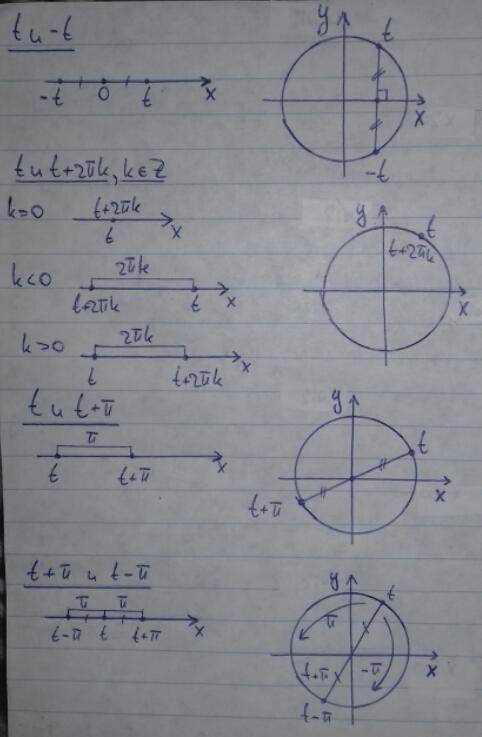 t и -t
y t
-t 0 t x
x
-t
t и t+2πk, k∈Z
k=0 t+2πk
t x
y t
t+2πk
x
k<0 2πk
t+2πk t x
k>0 2πk
t t+2πk x
t и t+π
π
t t+π x
y t
t+π x
t+π и t-π
π π
t-π t t+π x
y t
π
t+π -π x
t-π